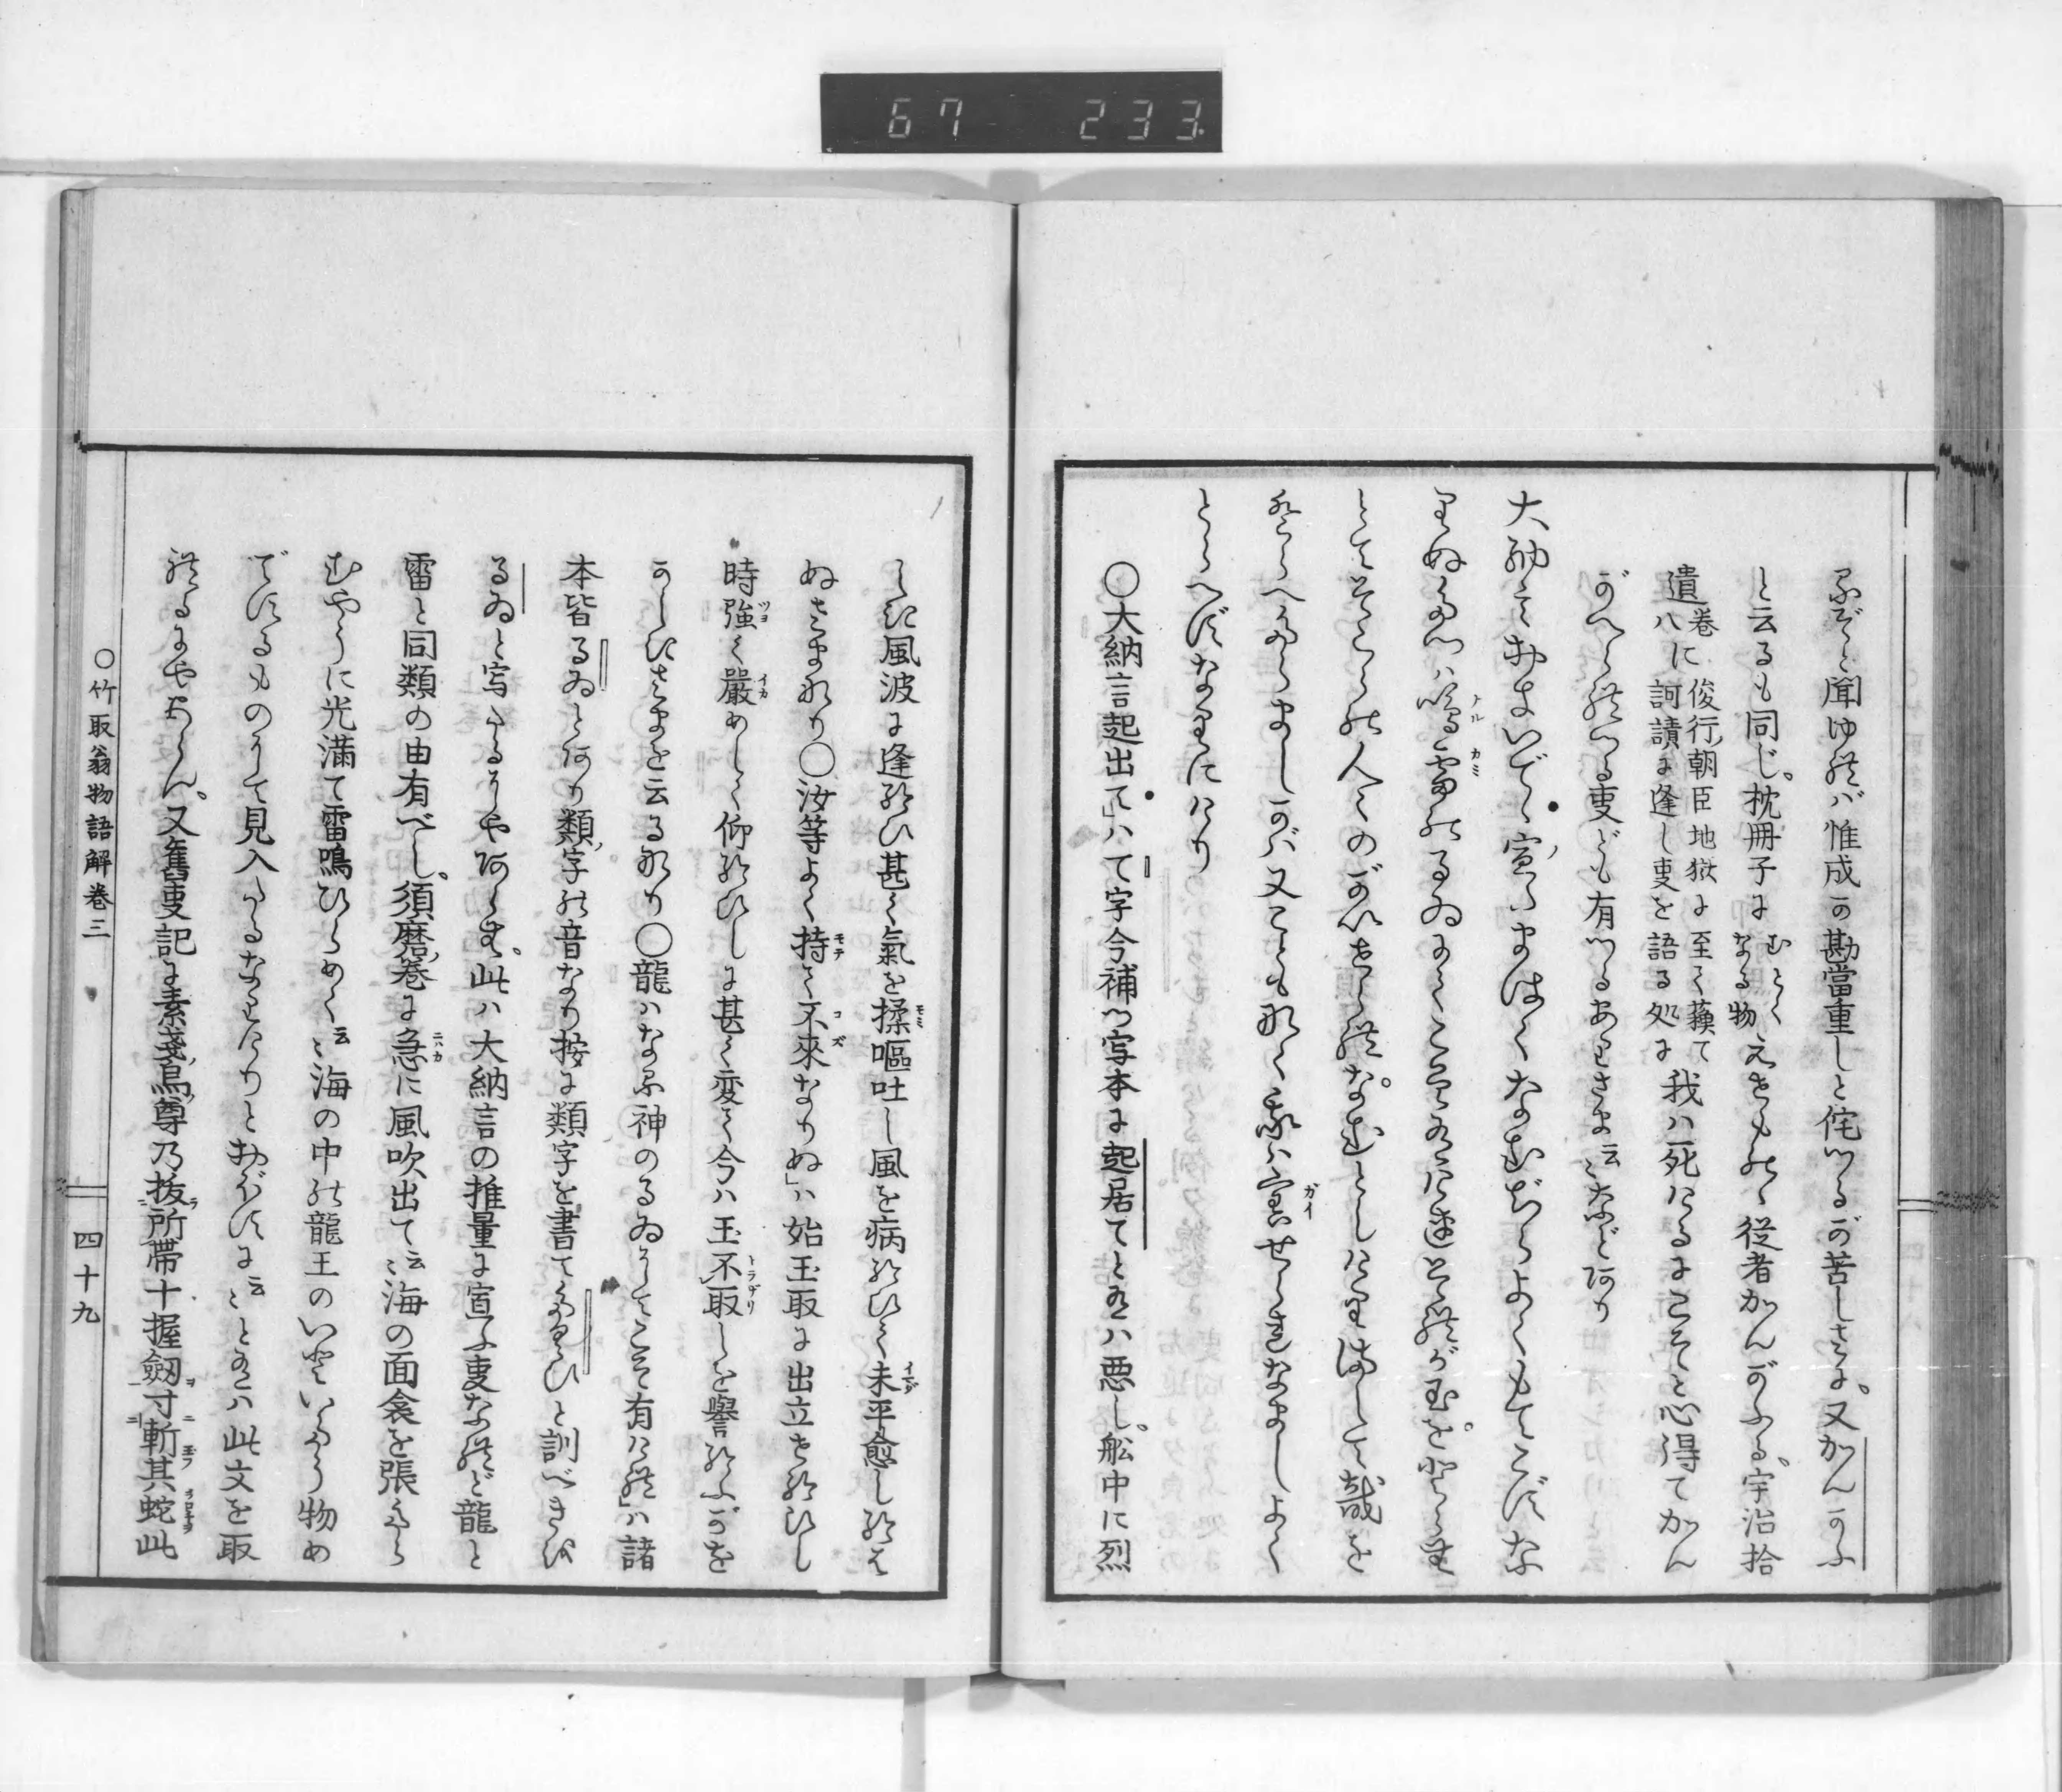 67 233
ふぞと聞ゆれバ惟成が勘當重しと侘つるが苦しさに。又かんかふ
と云るも同じ。枕冊子にむとくなる物 えせものゝ従者かんがふる、宇治拾
遺巻八に俊行朝臣地獄に至て蘓て訶請に逢し叓を語る処に我ハ死にけるにこそと心得てかん
がへられつる叓ども有つるありさま云々などあり
大納言おきいでゝ宣ハまはくなむぢらよくもてこずな
りぬたつハ鳴雷のるゐにてこそ有けれそれが玉をとらむ
とてそこらの人々のがいせられなむとしけりましてたつを
とらへたらましかバ又こともなく我ハ害せられなましよく
とらへずなりにけり
○大納言起出て」ハて字今補つ写本に起居てとあるハ悪し。舩中に烈
しき風波に逢給ひ甚く氣を揉嘔吐し風を病給ひて未平愈し給は
ぬさまなり○汝等よく持て不來なりぬ」ハ始玉取に出立せ給ひし
時強く嚴めしく仰給ひしに甚く変て今ハ玉不取しを譽給ふがを
かしきさまを云るなり○龍ハなる神のるゐにてこそ有けれ」ハ諸
本皆るゐとあり類字の音なり按に類字を書てたぐひと訓べきを
るゐと写したるにやあらむ。此ハ大納言の推量に宣ふ叓なれど龍と
雷と同類の由有べし。須磨巻に急に風吹出て云々海の面衾を張たら
むやうに光満て雷鳴ひらめく云々海の中の龍王のいといたう物め
でするものにて見入たるなりけりとおぼすに云々とあるハ此文を取
れるにやあらん。又舊叓記に素戔烏尊乃抜所帶十握劔寸斬其蛇此
○竹取翁物語解卷三 四十九